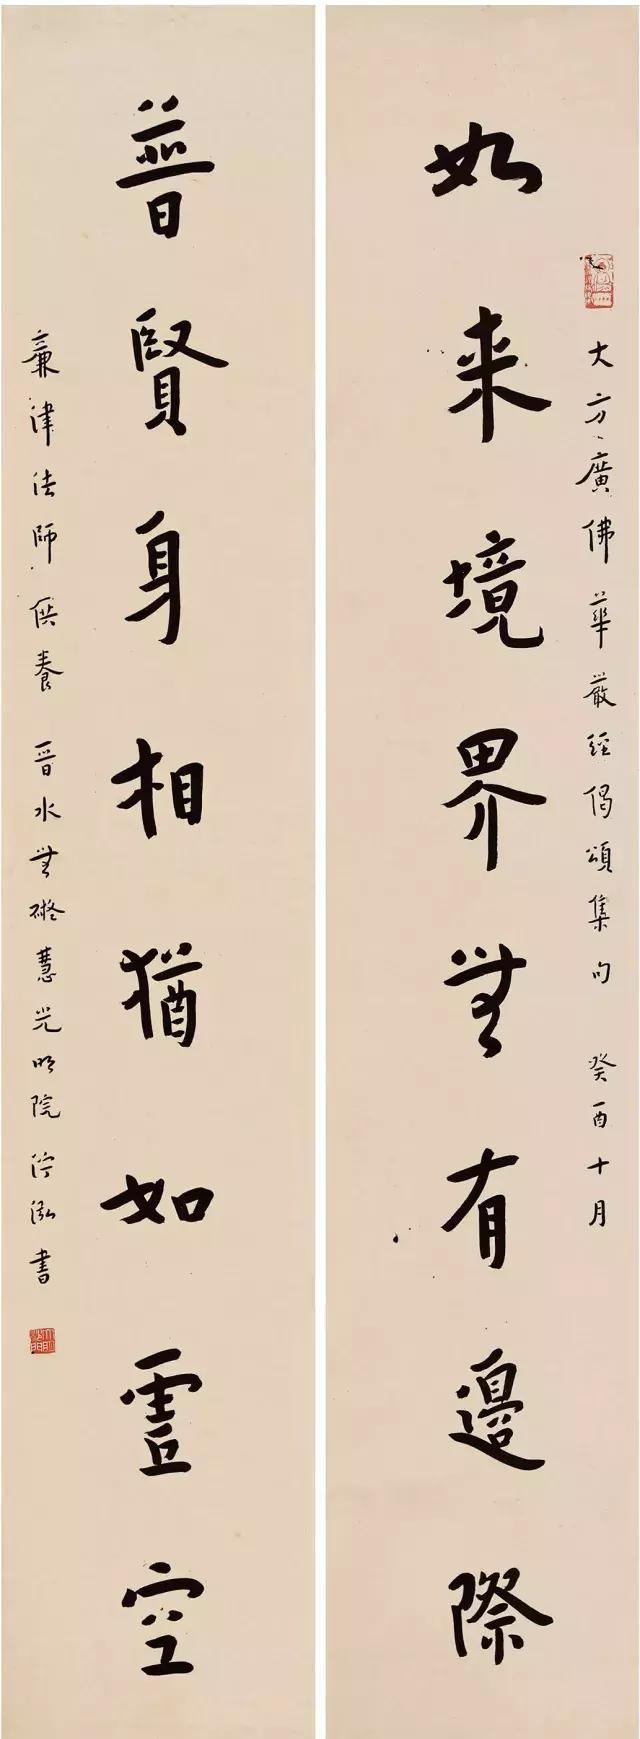 大方廣佛華嚴經偈頌集句 癸酉十月
如来境界無有邊際
普賢身相猶如虛空
津法師供養 晉水無礙慧光明院 泓書